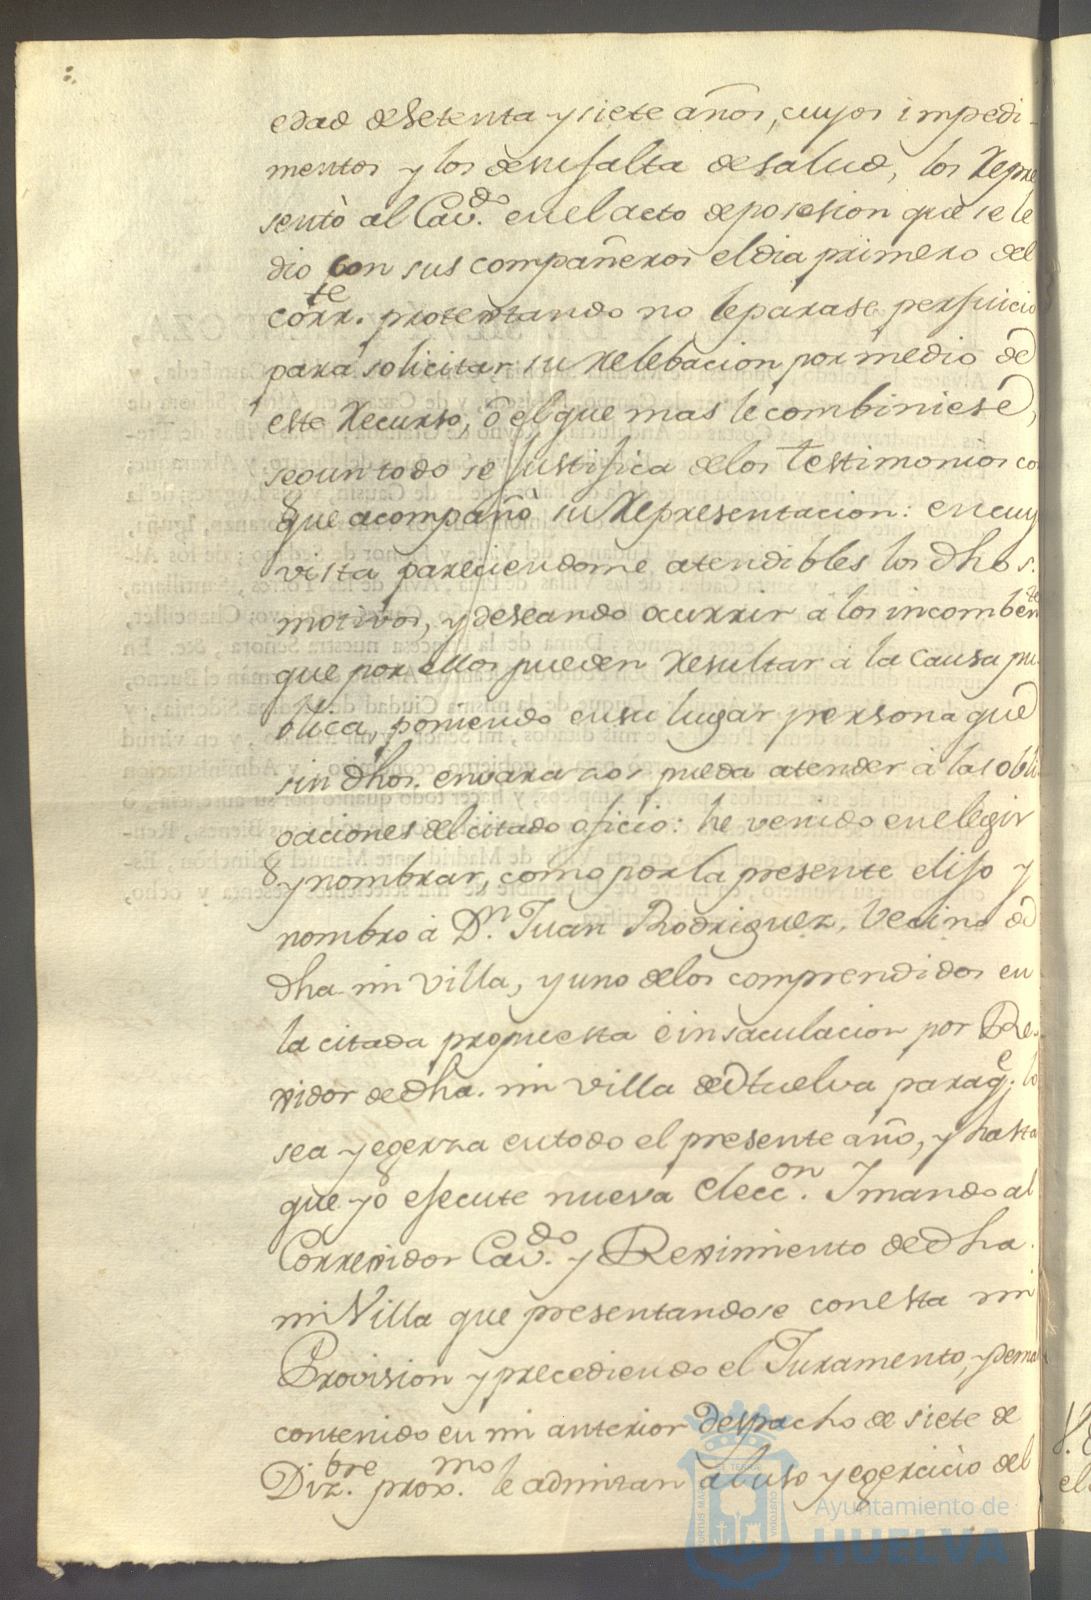 edad de setenta y siete años, cuyos impedi-
mentos y los de su falta de salud, los Repre
sentò al Cav.do en el acto de posesion que se le
dio con sus compañeros el dia primero del
corr.te protestando no le parase perjuicio
para solicitar su relebacion por medio de
este Recurso, ò el que mas le combiniese,
segun todo se justifica de los testimonios co
que acompañò su Representacion: en cuy
vista pareciendome atendibles los dhos.
motivos, y deseando ocurrir à los incombende
que por ellos pueden resultar à la causa pu
blica, poniendo en su lugar persona que
sin dhos. envarazos pueda atender à las obli
gaciones del citado oficio: he venido en elegir
y nombrar, como por la presente elijo y
nombro à D.n Juan Rodriguez, Vecino de
dha mi villa, y uno de los comprendidos en
la citada propuesta è insaculacion por Re-
gidor de dha. mi villa de Huelva para q.e lo
sea y egerza en todo el presente año, y hasta
que yo ejecute nueva elecc.on Y mando al
Corregidor Cav.do y Regimiento de dha.
mi Villa que presentandose con esta mi
Provision y precediendo el Juramento, y dema
contenido en mi anterior despacho de siete de
Diz.bre prox.mo le admitan al uso y egercicio del
Ayuntamiento de
HUELVA